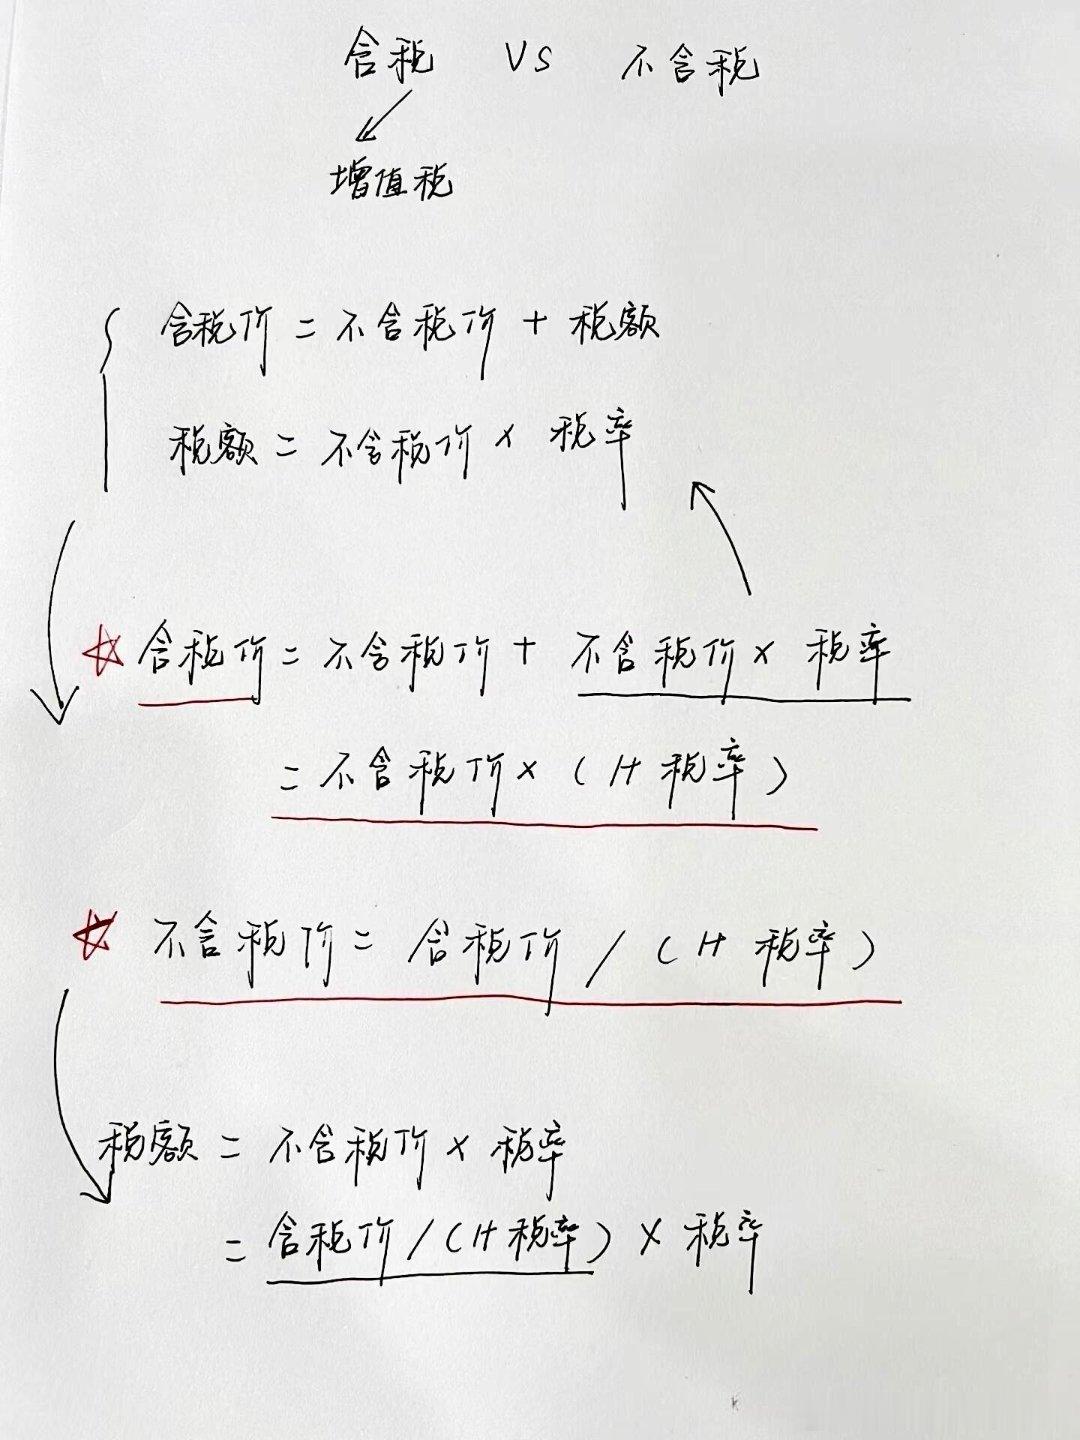 含税 VS 不含税
增值税
含税价 = 不含税价 + 税额
税额 = 不含税价 × 税率
☆ 含税价 = 不含税价 + 不含税价 × 税率
= 不含税价 × (1+税率)
☆ 不含税价 = 含税价 / (1+税率)
税额 = 不含税价 × 税率
= 含税价 / (1+税率) × 税率